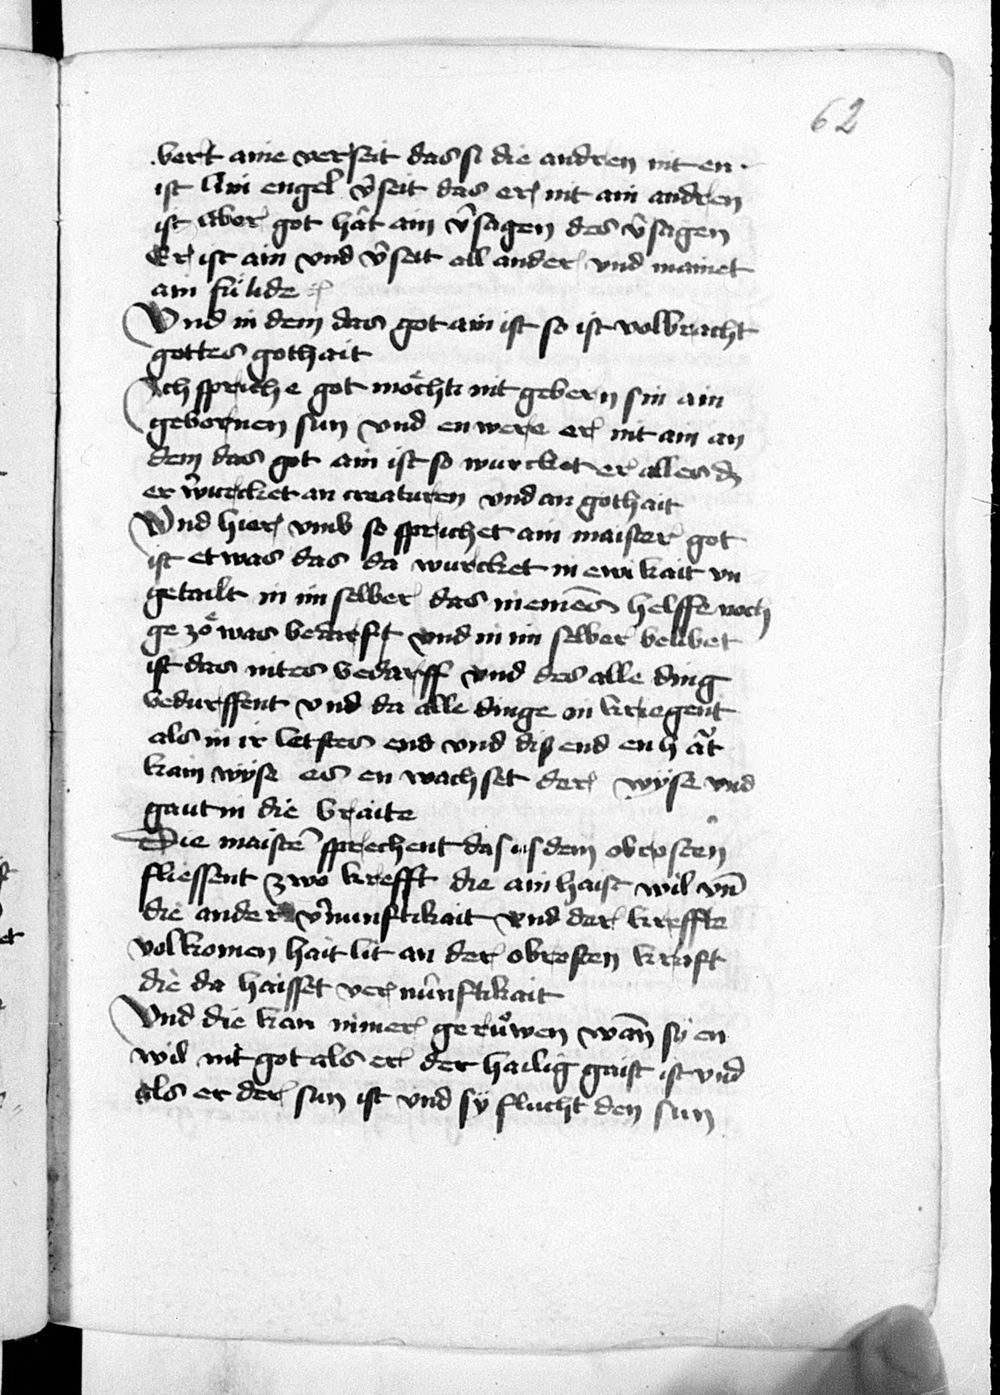 62
bert aine verseit das si die andren nit en
ist Ain engel v̂seit das er nit ain andren
ist aber got hât ain v̂sagen des v̂sagen
Er ist ain vnd v̂seit all ander vnd mainet
ain fúlide
Vnd in dem das got ain ist so ist volbracht
gottes gothait
Ich spriche got möchti nit gebern sin ain
gebornen sun vnd en were er nit ain an
dem das got ain ist so wurcket er alles dz
er wurcket an creaturen vnd an gothait
Vnd hier vmb so sprichet ain maister got
ist etwas das da wurcket in ewikait vn
getailt in im selber das niemēs helffe noch
gezöwas bedarft vnd in im selber belibet
ist das nites bedarff vnd des alle ding
bedurffent vnd da alle dinge in kriegent
als in ir letstes end vnd dis end en hât
kain wyse es en wachset der wyse vnd
gaut in die braite
Die maister̄ sprechent das us dem obrosten
fliessent zwo krefft die ain haist wil vn̄
die ander v̂nunftikait vnd der kreffte
volkomenhait lit an der obresten kraft
die da haisset vernúnftikait
Vnd die kan nimer gerůwen wan̄ sÿ en
wil nit got als er der hailig gaist ist vnd
als er der sun ist vnd sÿ flucht den sun